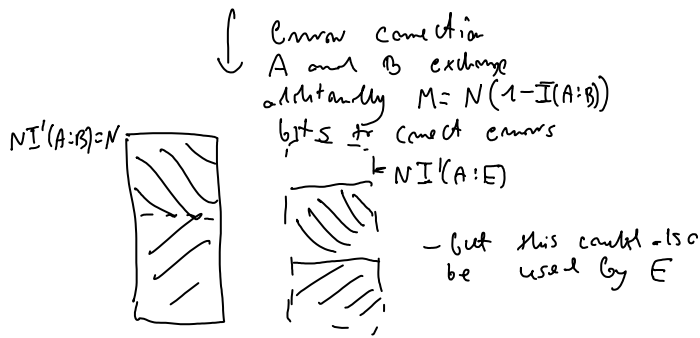 error correction
A and B exchange
additionally M = N(1-I(A:B))
bits to correct errors
NI'(A:B)=N
NI'(A:E)
- but this could also
be used by E